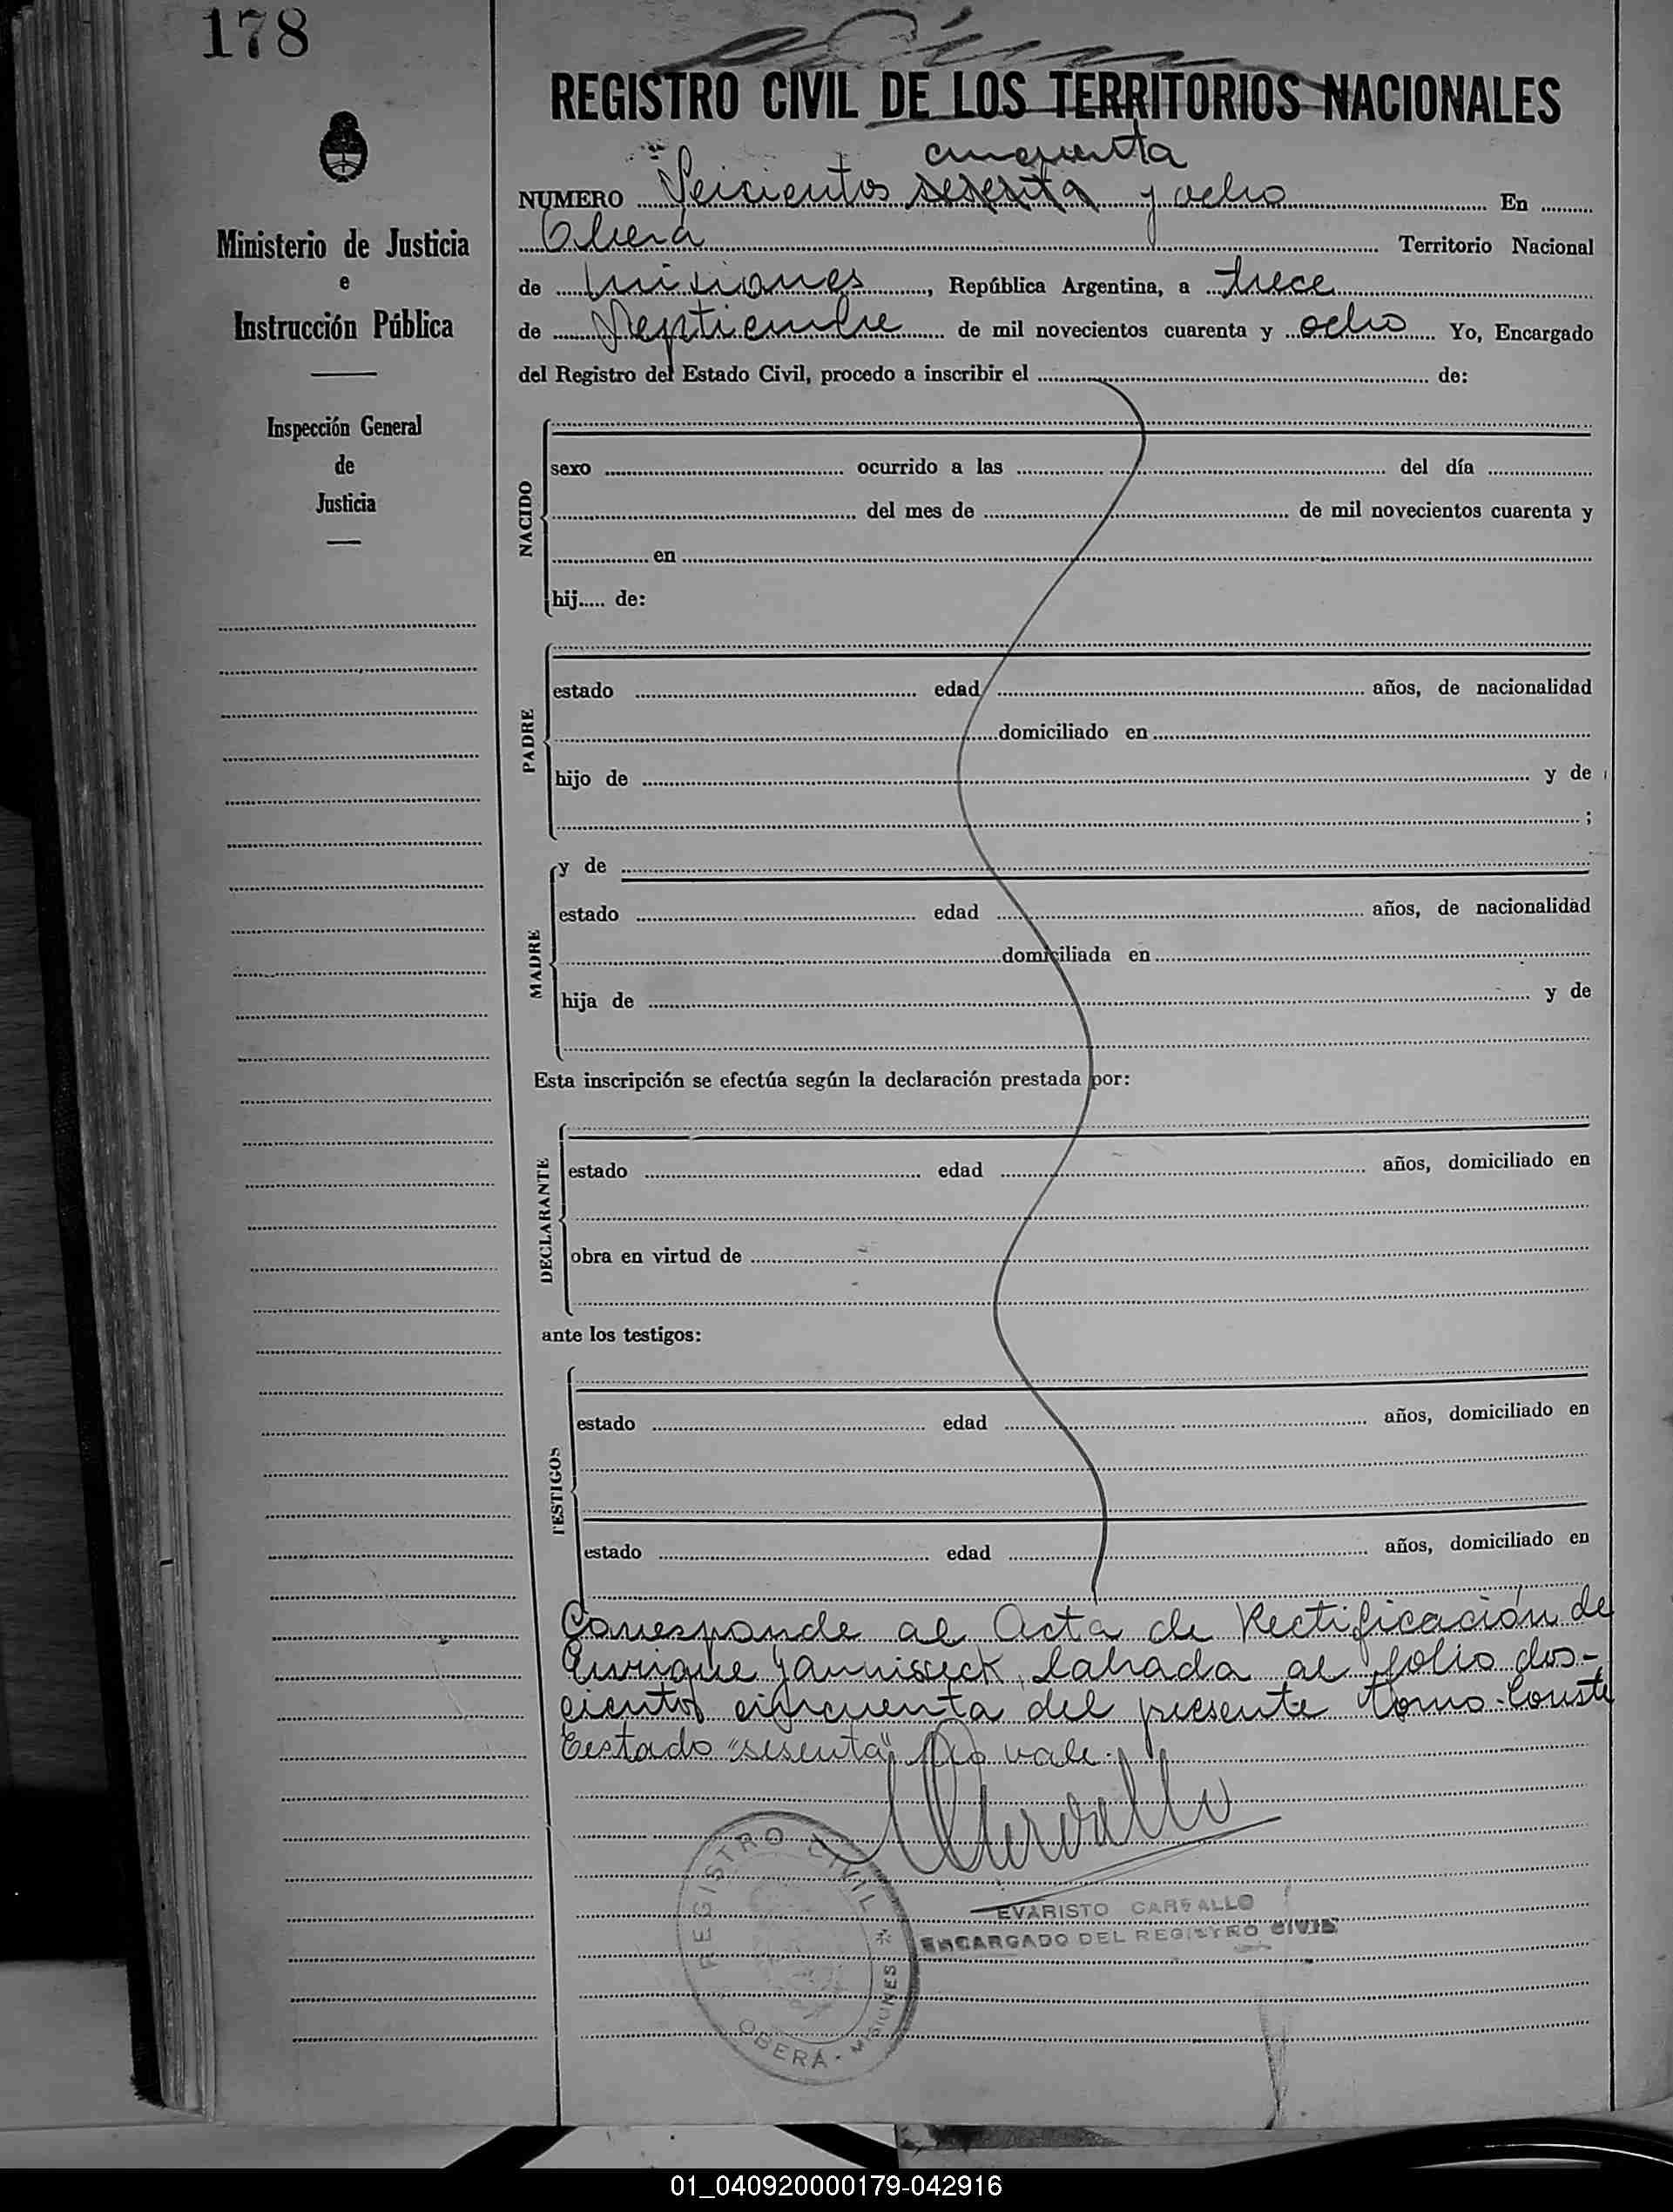 178
REGISTRO CIVIL DE LOS TERRITORIOS NACIONALES
cincuenta
NUMERO Seicientos sesenta y ocho En
Oberá Territorio Nacional
de Misiones, República Argentina, a trece
de Septiembre de mil novecientos cuarenta y ocho Yo, Encargado
del Registro del Estado Civil, procedo a inscribir el de:
Ministerio de Justicia
e
Instrucción Pública
Inspección General
de
Justicia
NACIDO
sexo ocurrido a las del día
del mes de de mil novecientos cuarenta y
en
hij..... de:
PADRE
estado edad años, de nacionalidad
domiciliado en
hijo de y de
;
MADRE
y de
estado edad años, de nacionalidad
domiciliada en
hija de y de
Esta inscripción se efectúa según la declaración prestada por:
DECLARANTE
estado edad años, domiciliado en
obra en virtud de
ante los testigos:
TESTIGOS
estado edad años, domiciliado en
estado edad años, domiciliado en
Corresponde al Acta de Rectificación de
Enrique Jannisseck, labrada al folio dos-
cientos cincuenta del presente tomo. Conste
Testado "sesenta" No vale.
REGISTRO CIVIL
OBERÁ - MISIONES
EVARISTO CARVALLO
ENCARGADO DEL REGISTRO CIVIL
01_040920000179-042916